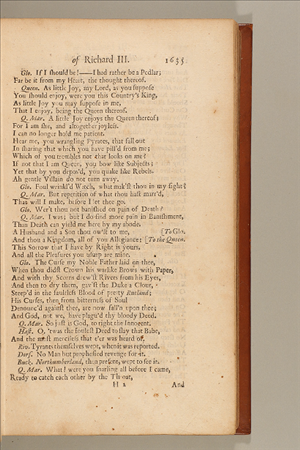 of Richard III. 1635
Glo. If I should be!——I had rather be a Pedlar;
Far be it from my Heart, the thought thereof.
Queen. As little Joy, my Lord, as you suppose
You should enjoy, were you this Country's King,
As little Joy you may suppose in me,
That I enjoy, being the Queen thereof.
Q. Mar. A little Joy enjoys the Queen thereof;
For I am she, and altogether joyless.
I can no longer hold me patient.
Hear me, you wrangling Pyrates, that fall out
In sharing that which you have pill'd from me;
Which of you trembles not that looks on me?
If not that I am Queen, you bow like Subjects;
Yet that by you depos'd, you quake like Rebels.
Ah gentle Villain do not turn away.
Glo. Foul wrinkl'd Witch, what mak'st thou in my sight?
Q. Mar. But repetition of what thou hast marr'd,
That will I make, before I let thee go.
Glo. Wer't thou not banished on pain of Death?
Q. Mar. I was; but I do find more pain in Banishment,
Than Death can yield me here by my abode.
A Husband and a Son thou ow'st to me, [To Glo.
And thou a Kingdom, all of you Allegiance; [To the Queen.
This Sorrow that I have by Right is yours,
And all the Pleasures you usurp are mine.
Glo. The Curse my Noble Father laid on thee,
When thou didst Crown his warlike Brows with Paper,
And with thy Scorns drew'st Rivers from his Eyes,
And then to dry them, gav'st the Duke a Clout,
Steep'd in the faultless Blood of pretty Rutland;
His Curses, then from bitterness of Soul
Denounc'd against thee, are now fall'n upon thee;
And God, not we, have plagu'd thy bloody Deed.
Q. Mar. So just is God, to right the Innocent.
Hast. O, 'twas the foulest Deed to slay that Babe,
And the most merciless that e'er was heard of.
Riv. Tyrants themselves wept, when it was reported.
Dors. No Man but prophesied revenge for it.
Buck. Northumberland, than present, wept to see it.
Q. Mar. What! were you snarling all before I came,
Ready to catch each other by the Throat,
H 2 And